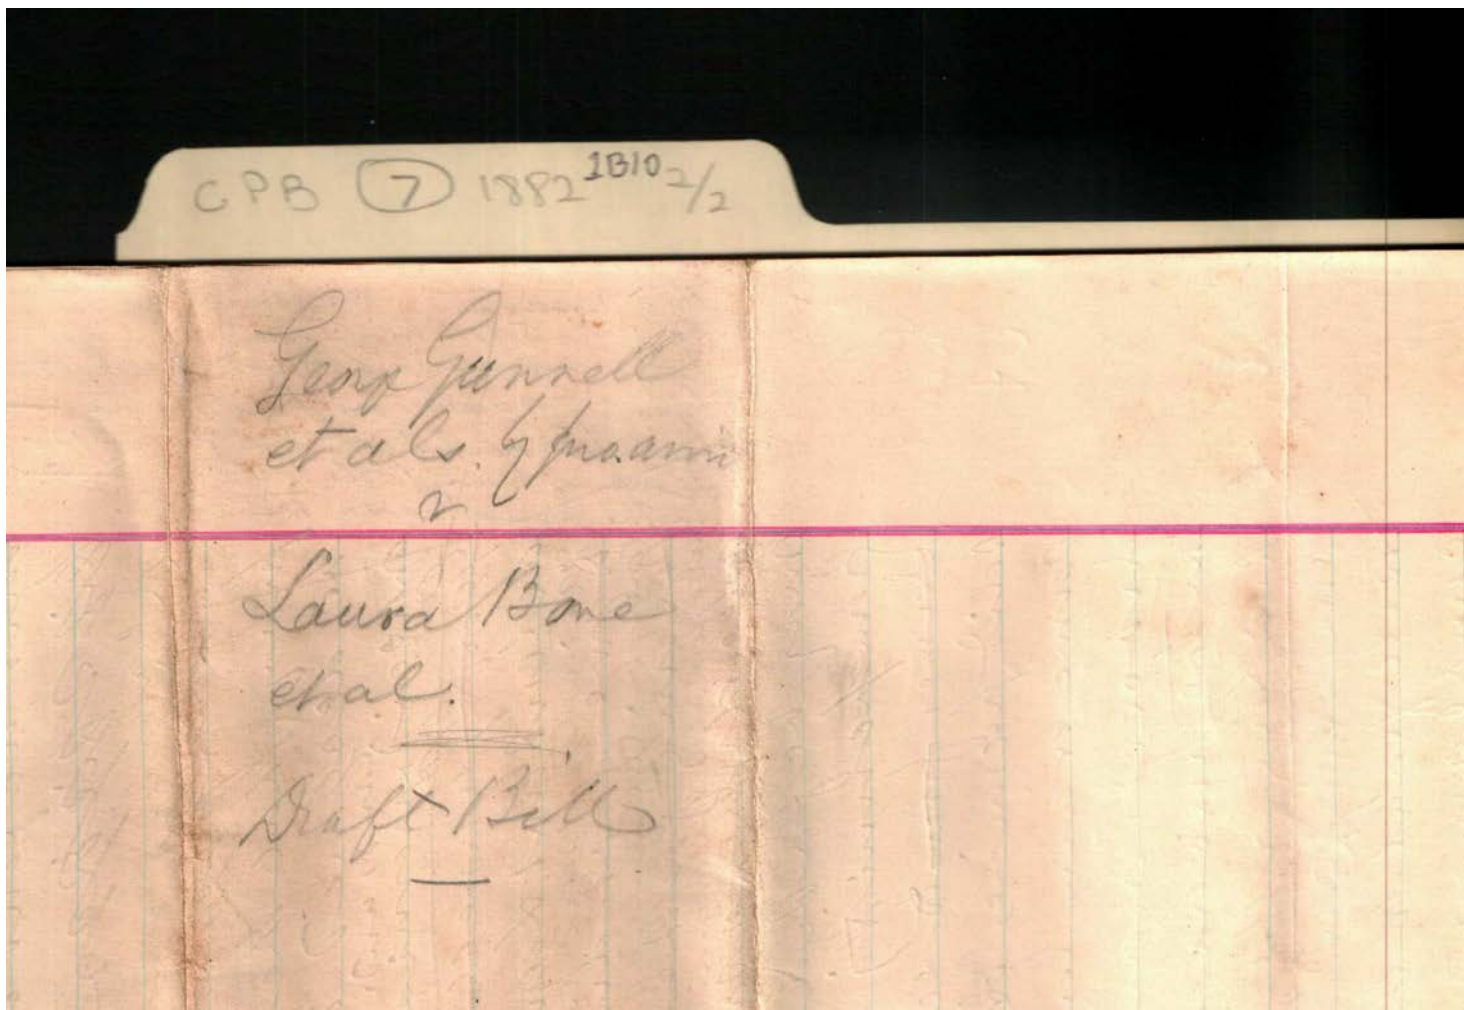 CPB 7 1882 1B10 2/2
George Gunnell
et als. by pro. ami
v
Laura Bone
et al.
Draft Bill